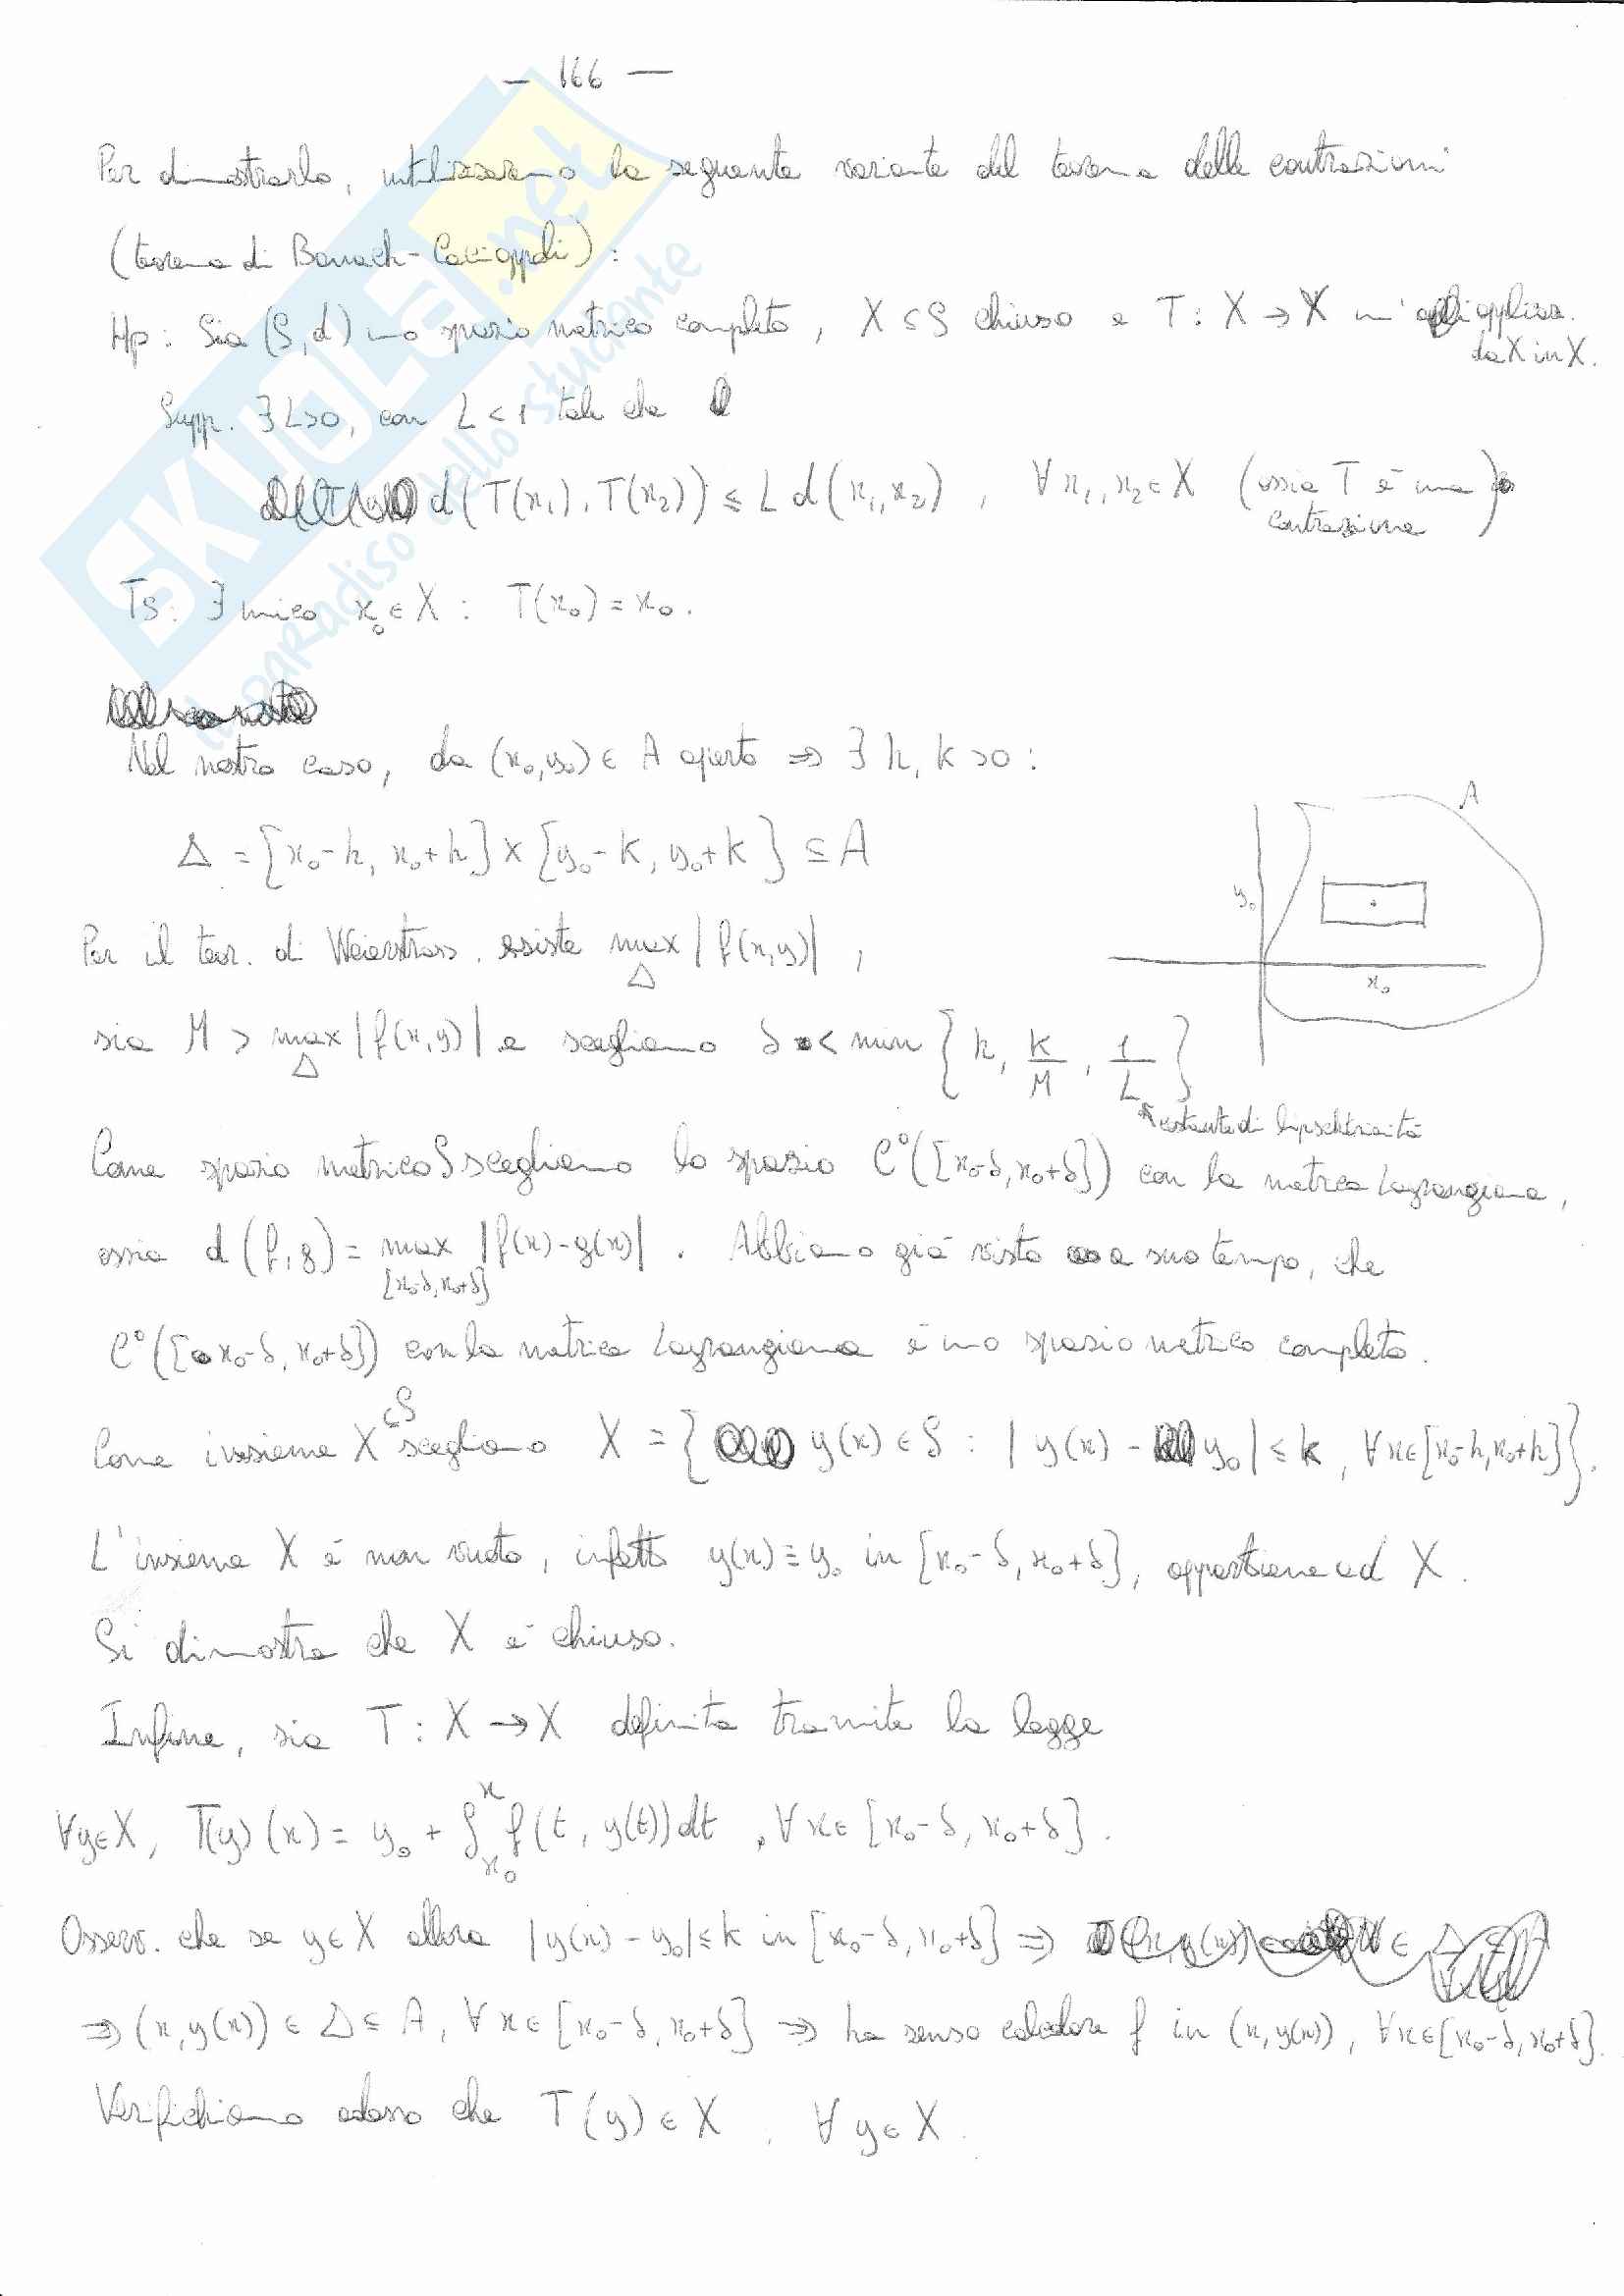 — 166 —
Per dimostrarlo, utilizzeremo la seguente variante del teorema delle contrazioni
(teorema di Banach-Caccioppoli):
Hp: Sia (S,d) uno spazio metrico completo, X ⊆ S chiuso e T: X → X un' applicaz.
da X in X.
Supp. ∃ L>0, con L < 1 tale che
d(T(x₁), T(x₂)) ≤ L d(x₁,x₂), ∀ x₁, x₂ ∈ X (ossia T è una
contrazione)
Ts: ∃ unico x₀ ∈ X : T(x₀) = x₀.
Nel nostro caso, da (x₀,y₀) ∈ A aperto ⇒ ∃ h, k > 0 :
Δ = [x₀-h, x₀+h] × [y₀-k, y₀+k] ⊆ A
A
y₀
x₀
Per il teor. di Weierstrass esiste max |f(x,y)| ,
Δ
sia M > max |f(x,y)| e scegliamo δ < min { h, k/M , 1/L }
Δ
costante di lipschitzianità
Come spazio metrico S scegliamo lo spazio C⁰([x₀-δ, x₀+δ]) con la metrica Lagrangiana,
ossia d(f,g) = max |f(x)-g(x)| . Abbiamo già visto a suo tempo, che
[x₀-δ, x₀+δ]
C⁰([x₀-δ, x₀+δ]) con la metrica Lagrangiana è uno spazio metrico completo.
Come insieme X ⊆S scegliamo X = { y(x) ∈ S : | y(x) - y₀| ≤ k, ∀ x∈[x₀-h, x₀+h]}.
L'insieme X è non vuoto, infatti y(x) ≡ y₀ in [x₀-δ, x₀+δ], appartiene ad X.
Si dimostra che X è chiuso.
Infine, sia T : X → X definita tramite la legge
∀y∈X, T(y)(x) = y₀ + ∫_{x₀}^{x} f(t, y(t)) dt , ∀ x∈ [x₀-δ, x₀+δ].
Osserv. che se y∈X allora |y(x) - y₀| ≤ k in [x₀-δ, x₀+δ] ⇒
⇒ (x,y(x)) ∈ Δ ⊆ A, ∀ x∈ [x₀-δ, x₀+δ] ⇒ ha senso calcolare f in (x,y(x)), ∀x∈[x₀-δ, x₀+δ].
Verifichiamo adesso che T(y) ∈ X, ∀ y∈X.
SKUOLa.net
il paradiso dello studente